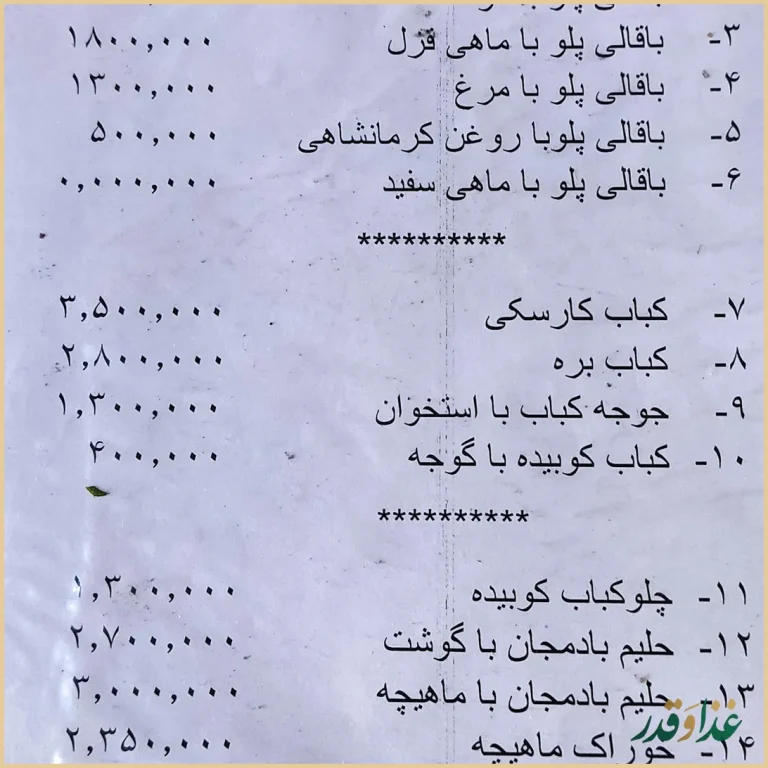 ۳- باقالی پلو با ماهی قزل ۱۸۰۰,۰۰۰
۴- باقالی پلو با مرغ ۱۳۰۰,۰۰۰
۵- باقالی پلوبا روغن کرمانشاهی ۵۰۰,۰۰۰
۶- باقالی پلو با ماهی سفید ۰,۰۰۰,۰۰۰
**********
۷- کباب کارسکی ۳,۵۰۰,۰۰۰
۸- کباب بره ۲,۸۰۰,۰۰۰
۹- جوجه کباب با استخوان ۱,۳۰۰,۰۰۰
۱۰- کباب کوبیده با گوجه ۴۰۰,۰۰۰
**********
۱۱- چلوکباب کوبیده ۱,۳۰۰,۰۰۰
۱۲- حلیم بادمجان با گوشت ۲,۷۰۰,۰۰۰
۱۳- حلیم بادمجان با ماهیچه ۳,۰۰۰,۰۰۰
۱۴- خوراک ماهیچه ۲,۳۵۰,۰۰۰
غذا و قدر